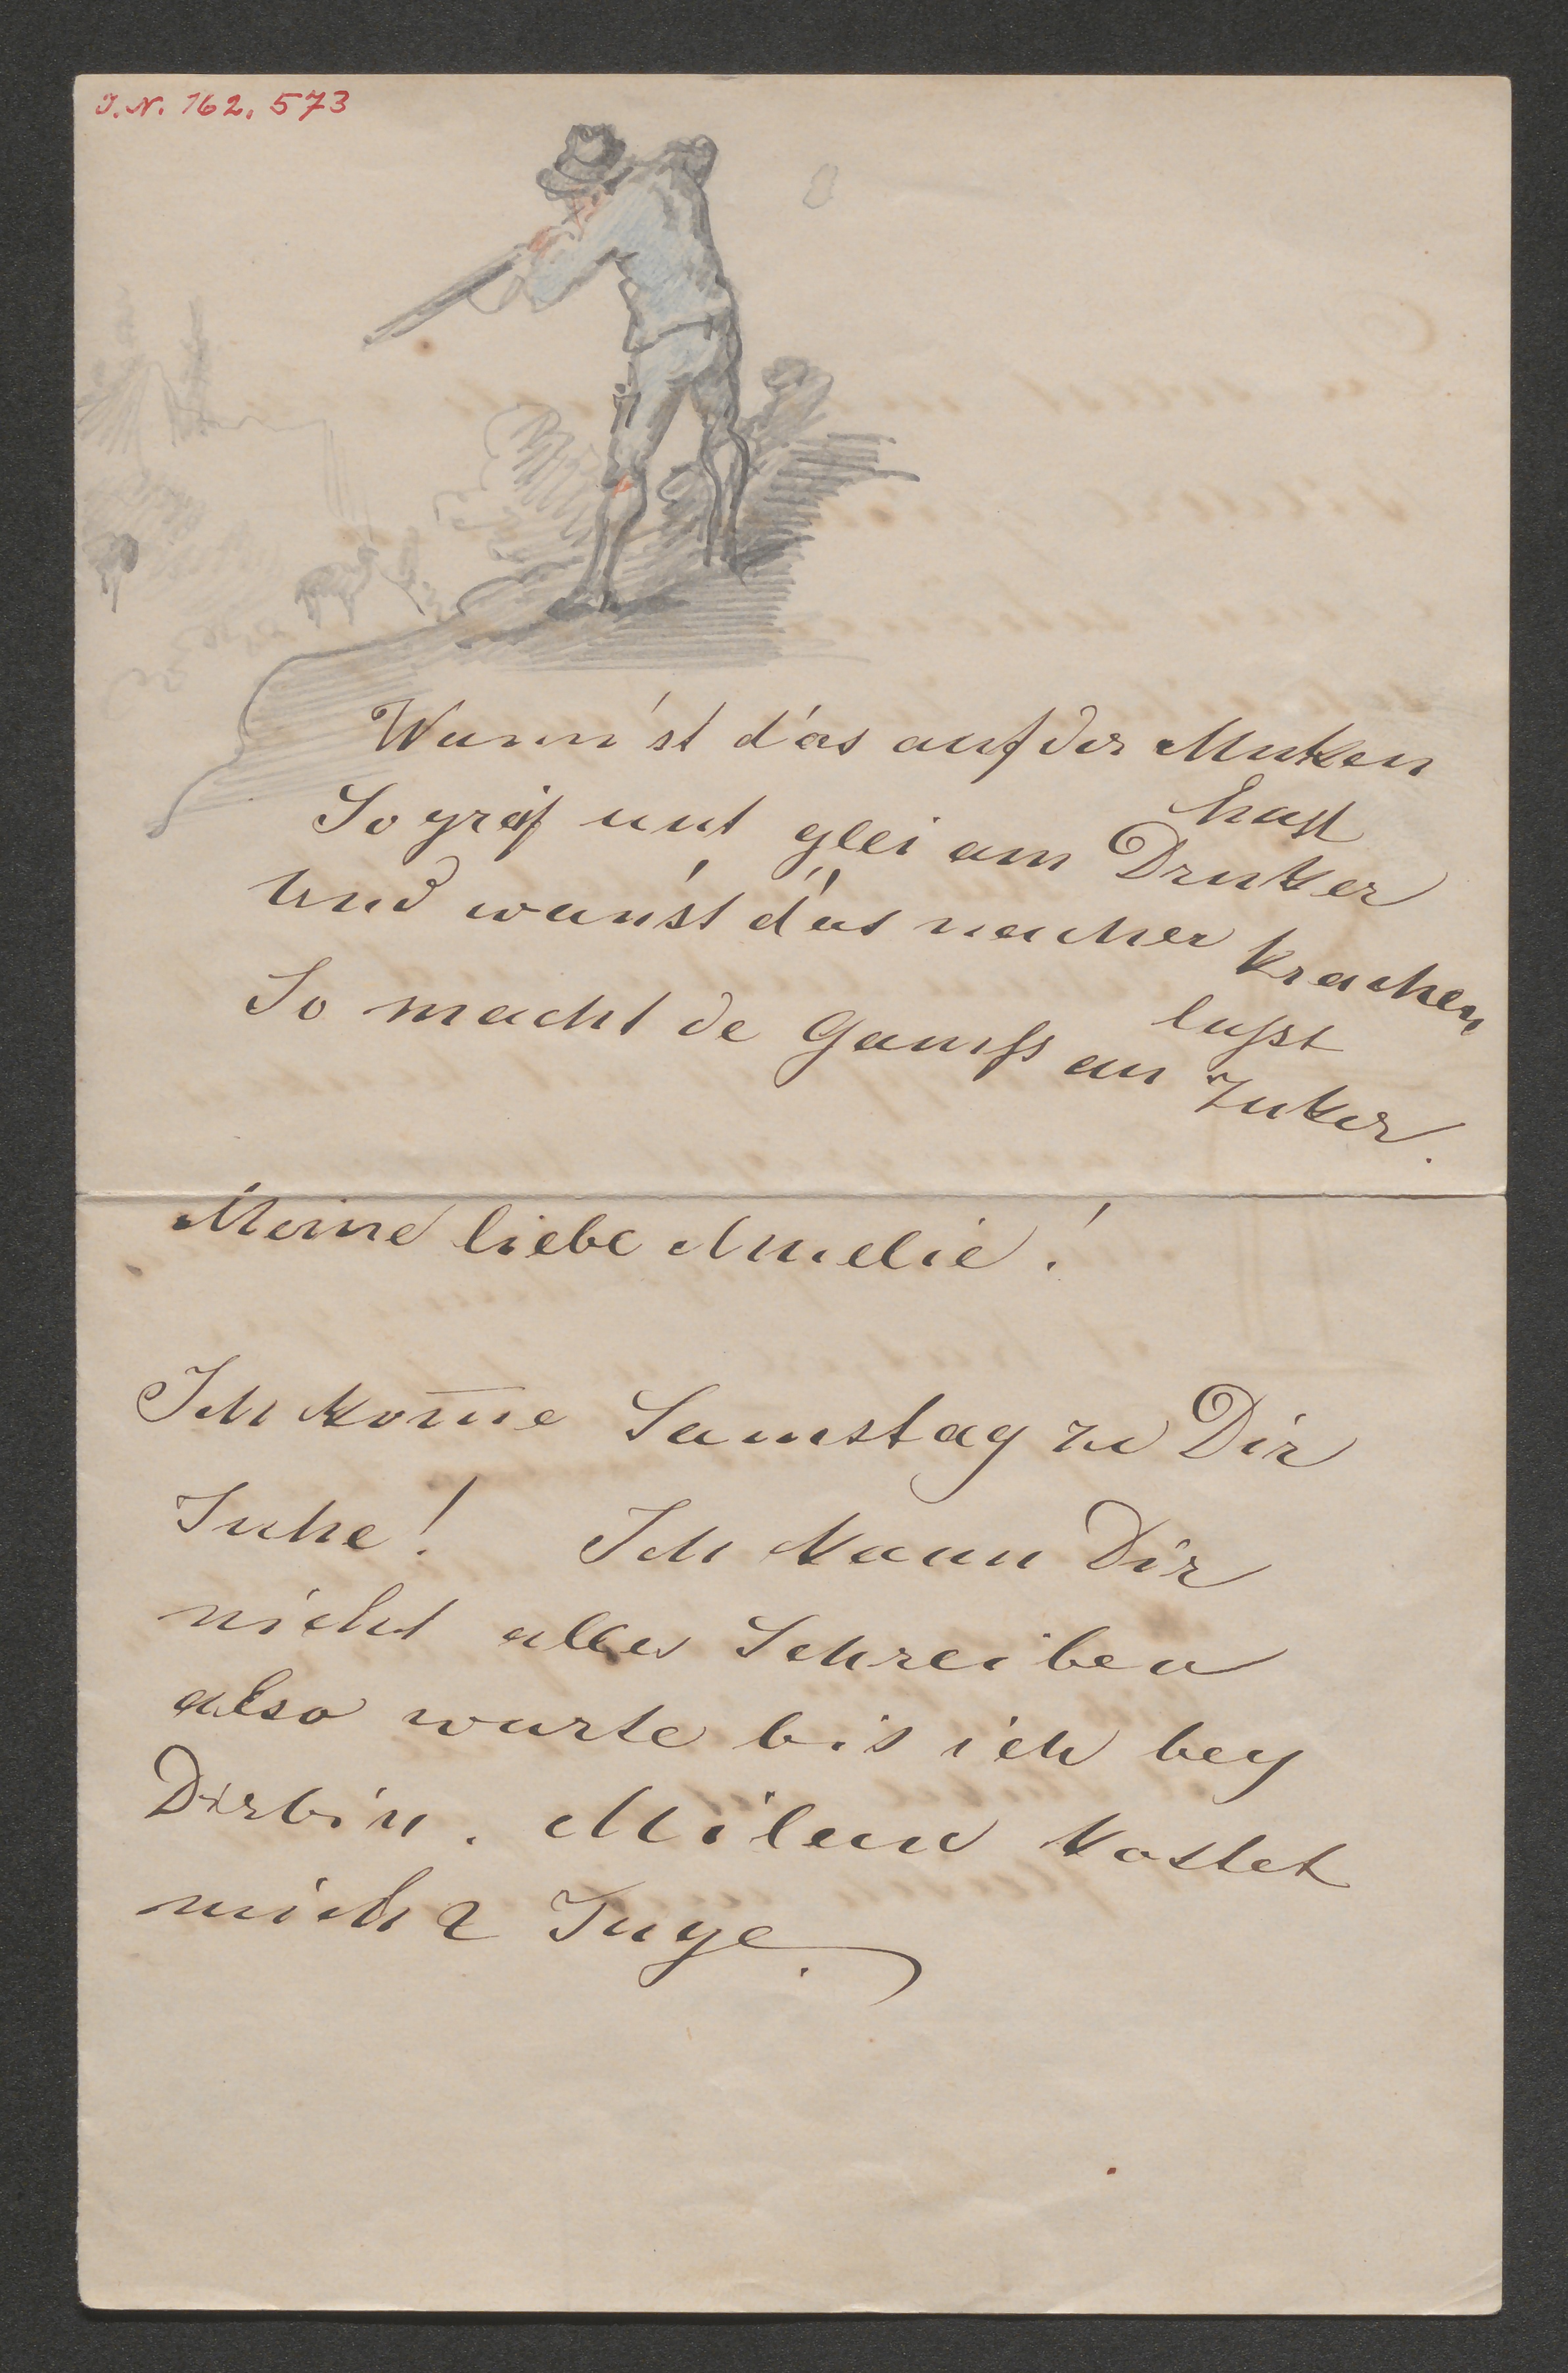 J. N. 162,573
Wann'st d'as auf der Muken
hast
So gräf unt glei am Druker
Und wan'st d'as nacher krachen
lasst
So macht de Gamss an Zuker.
Meine liebe Amelie!
Ich kom̄e Samstag zu Dir
Juhe! Ich kann Dir
nicht alles Schreiben
also warte bis ich bey
Dir bin. Mailand kostet
mich 2 Tage.